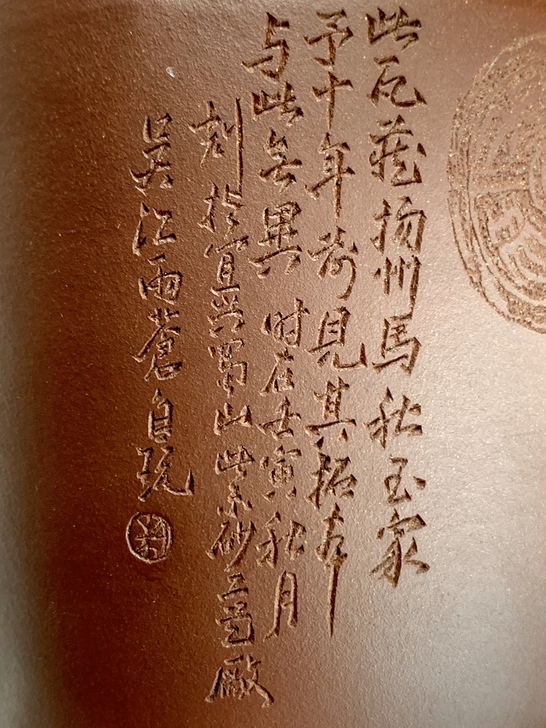 此瓦藏扬州馬秋玉家
予十年前見其拓本
与此無異 时在壬寅秋月
刻於宜兴蜀山紫砂二廠
吴江雨蒼自玩